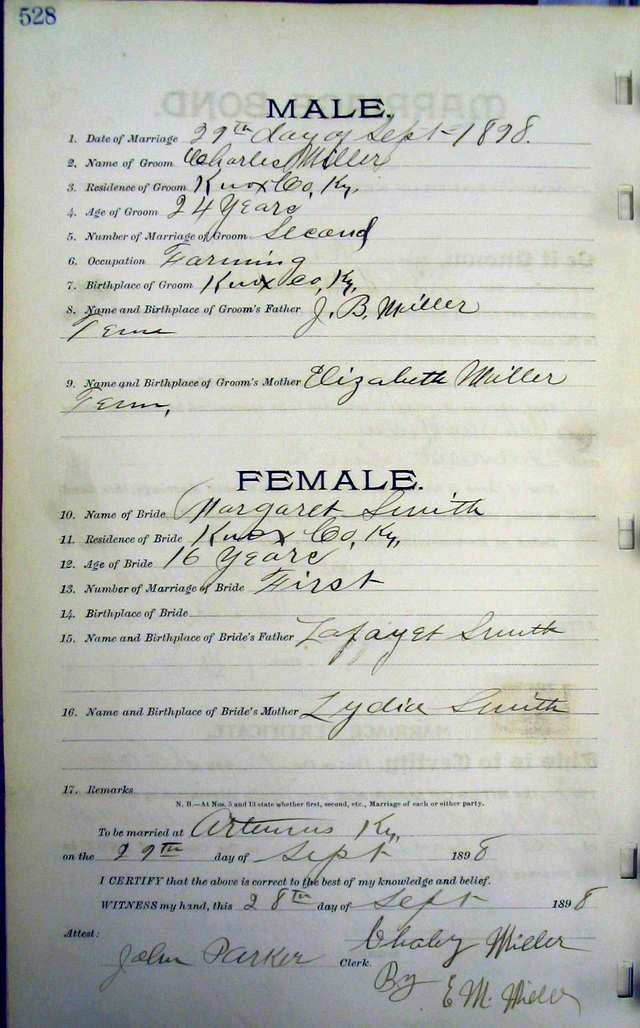 528
MALE.
1. Date of Marriage 29th day of Sept 1898.
2. Name of Groom Charlie Miller
3. Residence of Groom Knox Co, Ky,
4. Age of Groom 24 Years
5. Number of Marriage of Groom Second
6. Occupation Farming
7. Birthplace of Groom Knox Co, Ky,
8. Name and Birthplace of Groom's Father J. B. Miller
Tenn
9. Name and Birthplace of Groom's Mother Elizabeth Miller
Tenn,
FEMALE.
10. Name of Bride Margaret Smith
11. Residence of Bride Knox Co, Ky,
12. Age of Bride 16 Years
13. Number of Marriage of Bride First
14. Birthplace of Bride
15. Name and Birthplace of Bride's Father Lafayet Smith
16. Name and Birthplace of Bride's Mother Lydia Smith
17. Remarks
N. B.—At Nos. 5 and 13 state whether first, second, etc., Marriage of each or either party.
To be married at Artemus Ky,
on the 29th day of Sept 1898
I CERTIFY that the above is correct to the best of my knowledge and belief.
WITNESS my hand, this 28th day of Sept 1898
Attest: Miller
John Parker Clerk.
By E. M. Miller